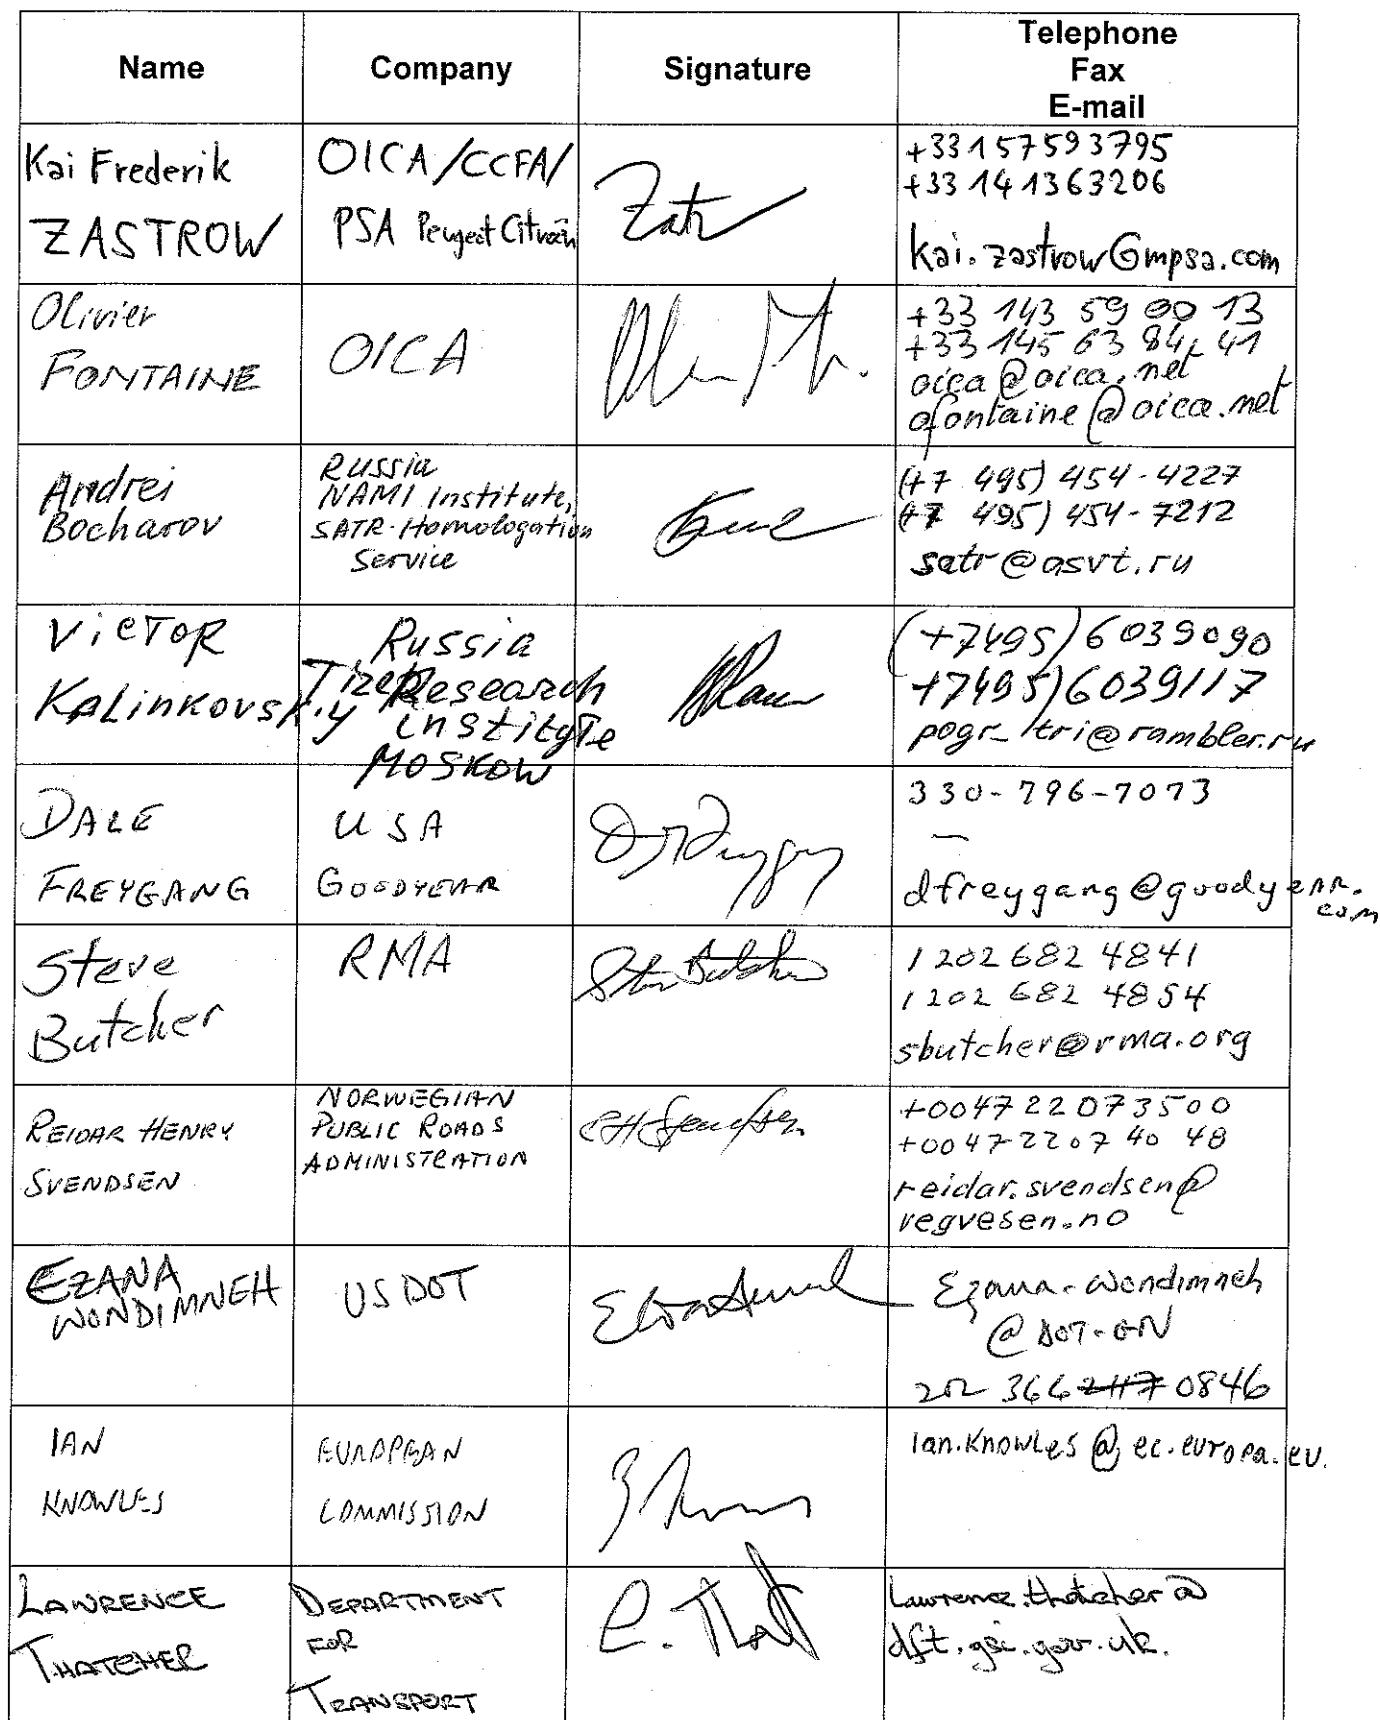 Name
Company
Signature
Telephone
Fax
E-mail
Kai Frederik
ZASTROW
OICA/CCFA/
PSA Peugeot Citroën
+33157593795
+33141363206
kai.zastrow@mpsa.com
Olivier
FONTAINE
OICA
+33 143 59 00 13
+33 145 63 84 41
oica@oica.net
ofontaine@oica.net
Andrei
Bocharov
Russia
NAMI Institute,
SATR-Homologation
Service
(+7 495) 454-4227
(+7 495) 454-7212
satr@asvt.ru
VicTOR
Kalinkovskiy
Russia
Tire Research
institute
MOSKOW
(+7495)6039090
+7495)6039117
pogr_tri@rambler.ru
DALE
FREYGANG
USA
GOODYEAR
330-796-7073
—
dfreygang@goodyear.
com
Steve
Butcher
RMA
1 202 682 4841
1 202 682 4854
sbutcher@rma.org
REIDAR HENRY
SVENDSEN
NORWEGIAN
PUBLIC ROADS
ADMINISTRATION
+004722073500
+0047 2207 40 48
reidar.svendsen@
vegvesen.no
EZANA
WONDIMNEH
US DOT
Ezana.Wondimneh
@DOT.GOV
202 366 2117 0846
IAN
KNOWLES
EUROPEAN
COMMISSION
Ian.Knowles@ec.europa.eu.
LAWRENCE
THATCHER
DEPARTMENT
FOR
TRANSPORT
Lawrence.thatcher@
dft.gsi.gov.uk.